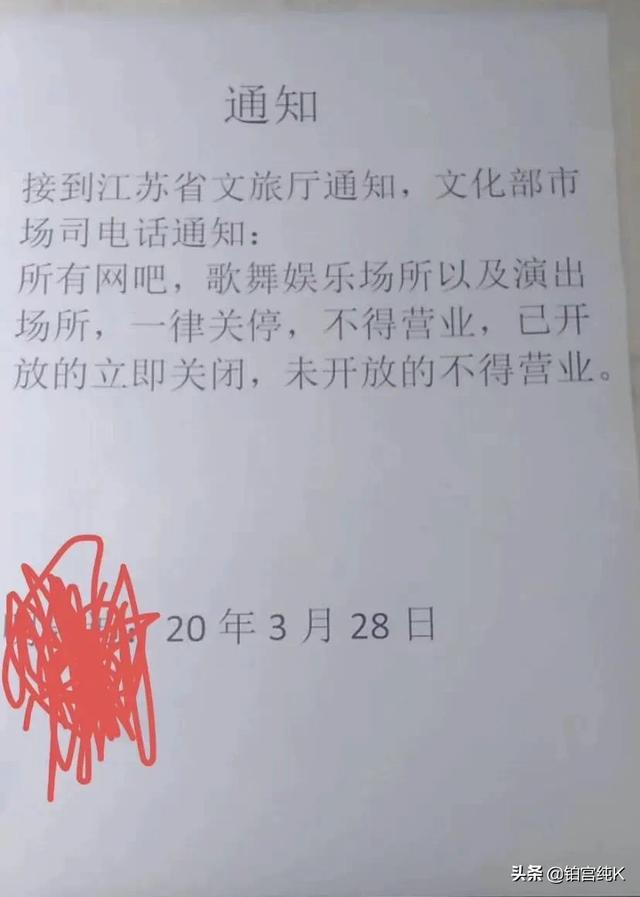 通知
接到江苏省文旅厅通知，文化部市
场司电话通知：
所有网吧，歌舞娱乐场所以及演出
场所，一律关停，不得营业，已开
放的立即关闭，未开放的不得营业。
20 年 3 月 28 日
头条 @铂宫纯K